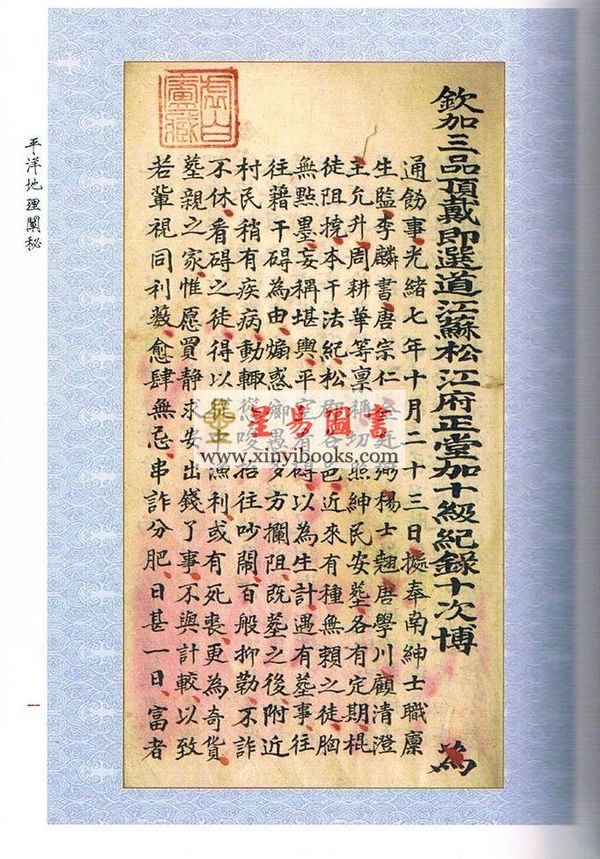 欽加三品頂戴即選道江蘇松江府正堂加十級紀錄十次博 為
通飭事光緒七年十月二十三日據奉南紳士職廩
生監李麟書唐宗仁楊士翹唐學川顧清澄
主允升周耕華等稟稱切照紳民安塟各有定期棍
徒阻撓本干法紀松各邑近來有種無賴之徒胸
無點墨妄稱堪輿平碍以為生計遇有塟事往
往藉干碍為由煽惑鄉愚多方攔阻既塟之後附近
村民稍有疾病動輒往吵鬧百般抑勒不詐
不休看碍之徒得以漁利或有死喪更為奇貨
塟親之家惟愿買靜求安出錢了事不與計較以致
若輩視同利薮愈肆無忌串詐分肥日甚一日富者
虛白廬藏
平洋地理闡秘
一
呈易圖書
www.xinyibooks.com